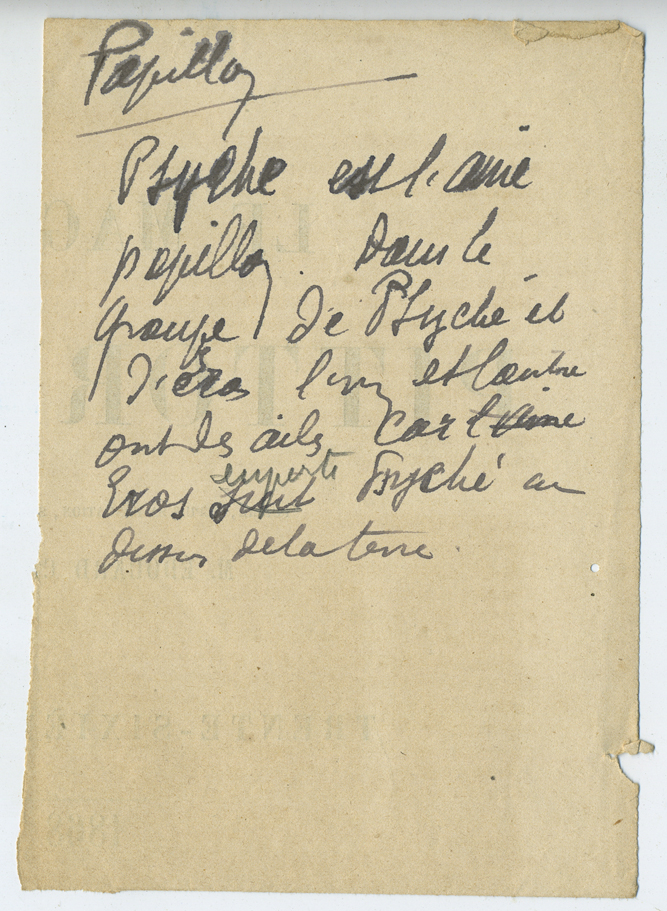 Papillon
Psyché est l'âme
papillon. Dans le
groupe de Psyché et
d'éros l'un et l'autre
ont des ailes car l'âme
emporte
Eros Psyché au
dessus de la terre